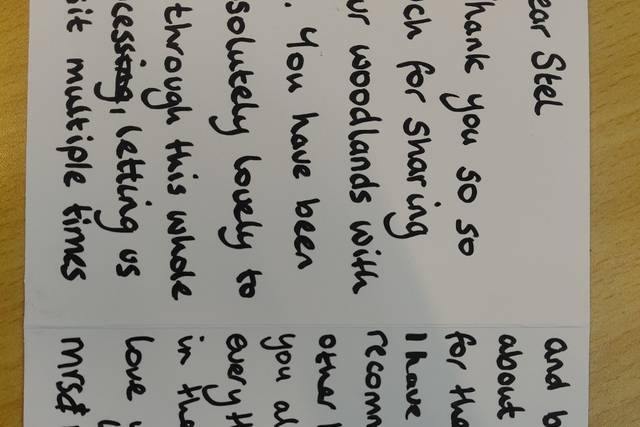 ear Stel
hank you so so
ch for sharing
ur woodlands with
. You have been
solutely lovely to
through this whole
cessing, letting us
sit multiple times
and b
about
for the
I have
recomm
other
you al
everyth
in the
love
mrs&